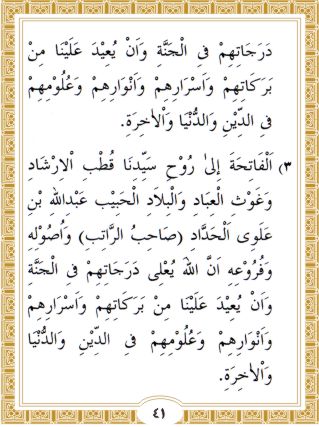 دَرَجَاتِهِمْ فِى الْجَنَّةِ وَاَنْ يُعِيْدَ عَلَيْنَا مِنْ
بَرَكَاتِهِمْ وَاَسْرَارِهِمْ وَاَنْوَارِهِمْ وَعُلُوْمِهِمْ
فِى الدِّيْنِ وَالدُّنْيَا وَاْلاٰخِرَةِ.
٣) اَلْفَاتِحَةَ اِلىٰ رُوْحِ سَيِّدِنَا قُطْبِ اْلاِرْشَادِ
وَغَوْثِ الْعِبَادِ وَالْبِلَادِ الْحَبِيْبِ عَبْدِاللهِ بْنِ
عَلَوِى الْحَدَّادِ (صَاحِبُ الرَّاتِبِ) وَاُصُوْلِهِ
وَفُرُوْعِهِ اَنَّ اللهَ يُعْلِى دَرَجَاتِهِمْ فِى الْجَنَّةِ
وَاَنْ يُعِيْدَ عَلَيْنَا مِنْ بَرَكَاتِهِمْ وَاَسْرَارِهِمْ
وَاَنْوَارِهِمْ وَعُلُوْمِهِمْ فِى الدِّيْنِ وَالدُّنْيَا
وَاْلاٰخِرَةِ.
٤١